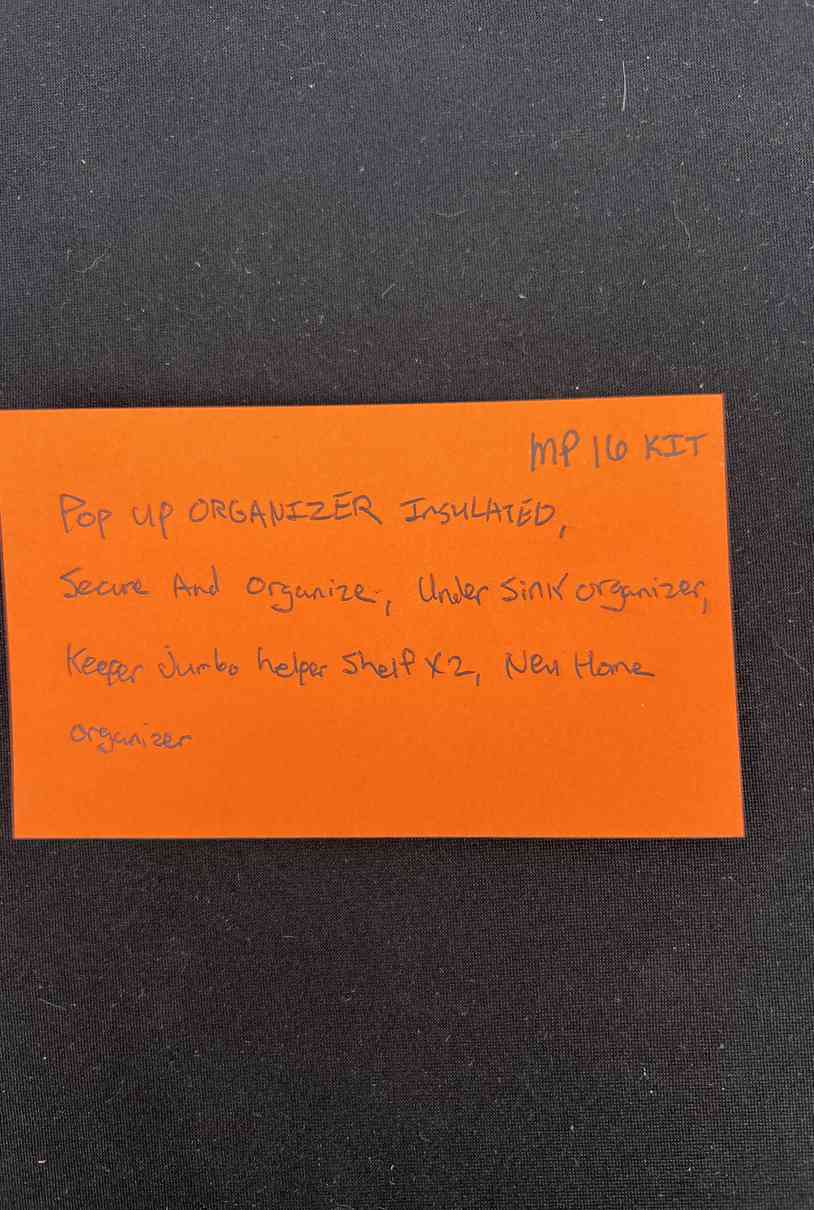 MP 16 KIT
Pop up ORGANIZER INSULATED,
Secure And organize, Under Sink organizer,
Keeper jumbo helper Shelf x2, New Home
organizer